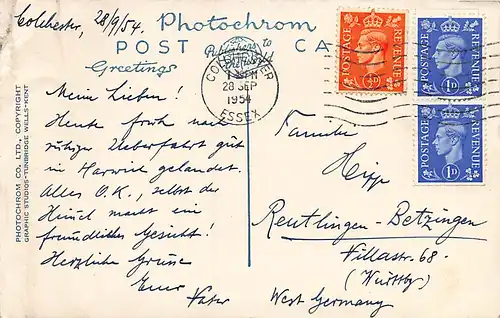 Colchester, 28/9/54.
Photochrom
POST CA
Publishers to
Greetings
COLCHESTER
28 SEP
1954
ESSEX
POSTAGE REVENUE
½D
POSTAGE REVENUE
1D
POSTAGE REVENUE
1D
PHOTOCHROM CO. LTD., COPYRIGHT
GRAPHIC STUDIOS-TUNBRIDGE WELLS-KENT
Meine Lieben!
Heute früh nach
ruhiger Ueberfahrt gut
in Harwich gelandet.
Alles O.K., selbst der
Himmel macht ein
freundliches Gesicht!
Herzliche Grüsse
Euer
Vater
Familie
Hipp
Reutlingen-Betzingen
Villastr. 68.
(Württbg)
West Germany